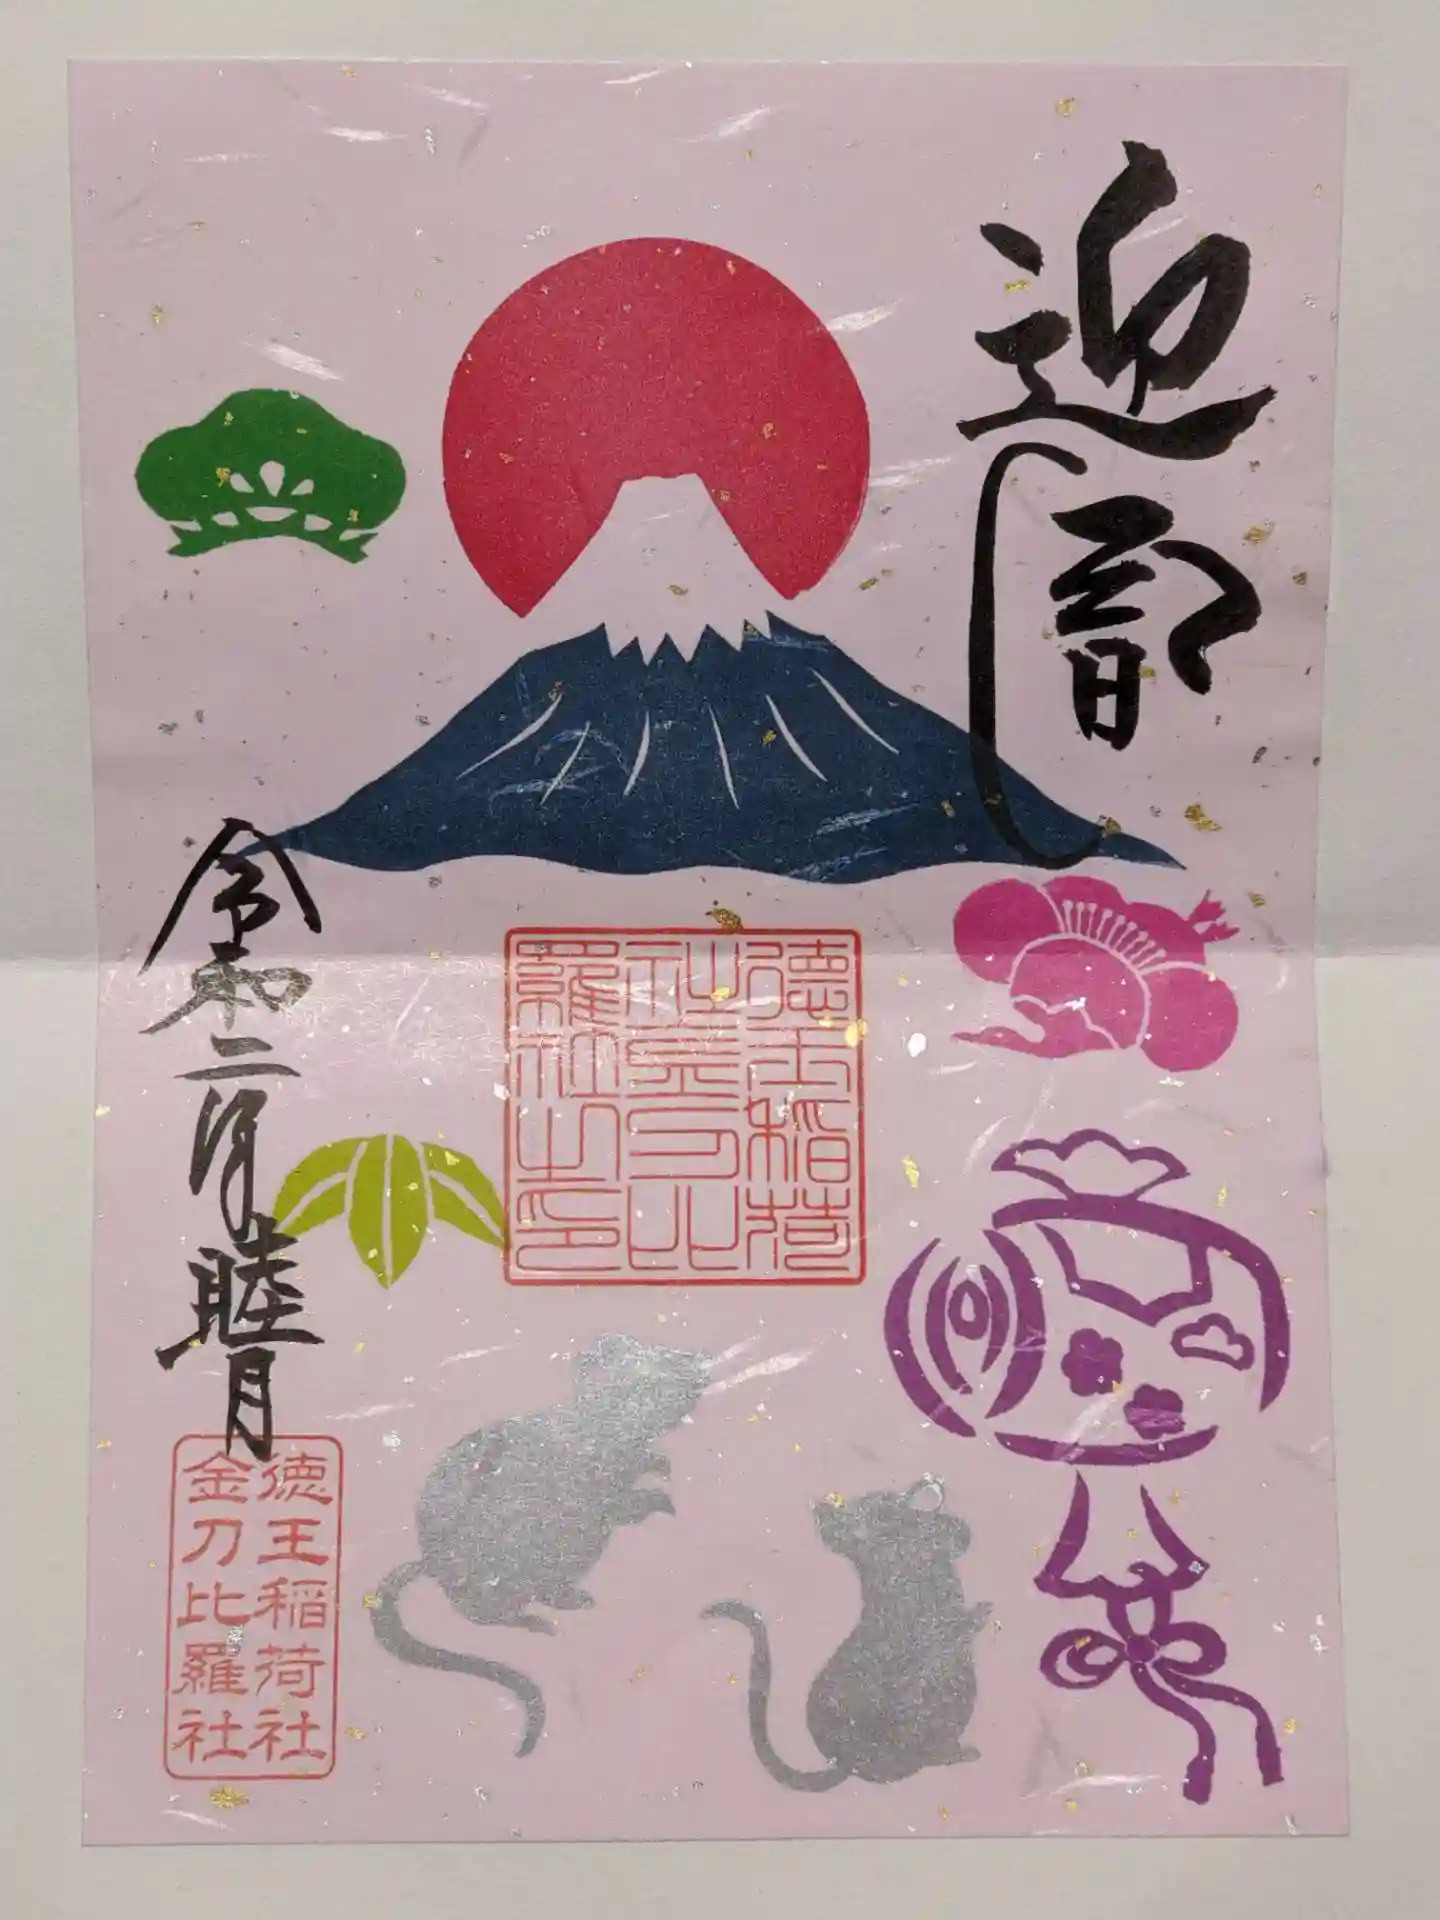 迎春
徳王稲荷
社金刀比
羅社之印
令和二年睦月
徳王稲荷社
金刀比羅社